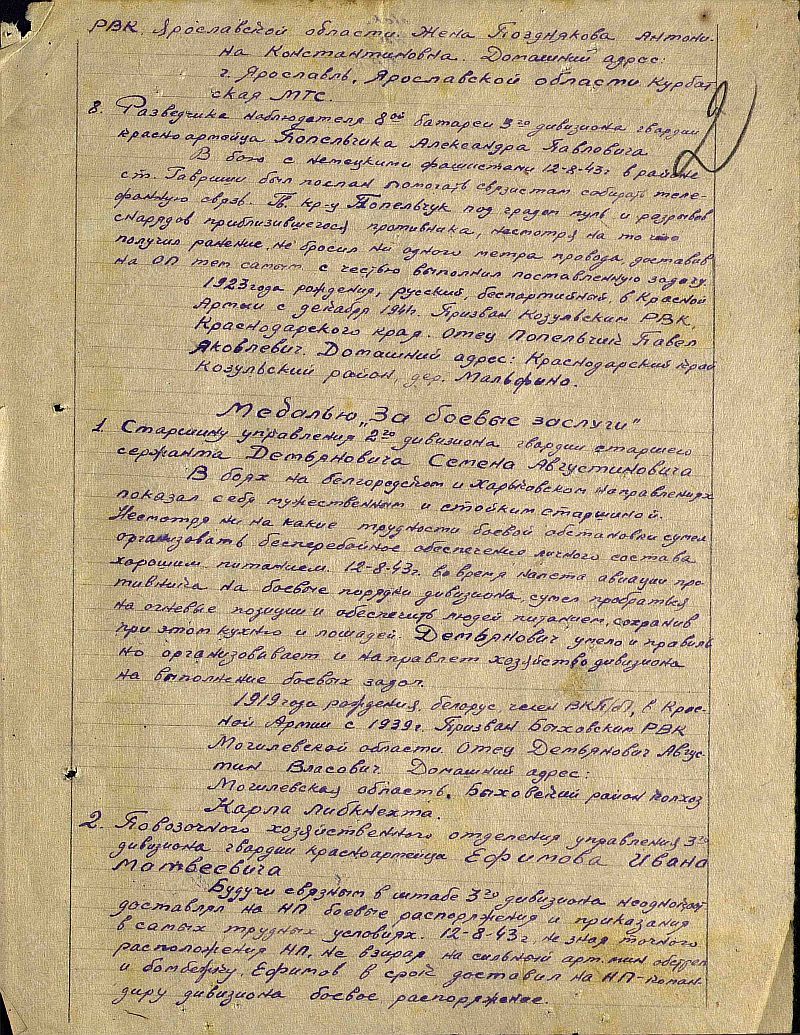 РВК. Ярославской области. Жена Позднякова Антони-
на Константиновна. Домашний адрес:
г. Ярославль, Ярославской области Курбат
ская МТС.
2
8. Разведчика наблюдателя 8ой батареи 3го дивизиона гвардии
красноармейца Попельчика Александра Павловича
В бою с немецкими фашистами 12-8-43г в районе
ст. Гавриши был послан помогать связистам собирать теле-
фанную связь. Гв. кр-ц Попельчук под градом пуль и разрывов
снарядов приблизившегося противника, несмотря на то что
получил ранение, не бросил ни одного метра провода, доставив
на ОП тем самым с честью выполнил поставленную задачу.
1923 года рождения, русский, беспартийный, в Красной
Армии с декабря 1941г. Призван Козульским РВК,
Краснодарского края. Отец Попельчик Павел
Яковлевич. Домашний адрес: Краснодарский край
Козульский район, дер. Мальфино.
Медалью „За боевые заслуги"
1. Старшину управления 2го дивизиона гвардии старшего
сержанта Демьяновича Семена Августиновича
В боях на белгородском и Харьковском направлениях
показал себя мужественным и стойким старшиной.
Несмотря ни на какие трудности боевой обстановки сумел
организовать бесперебойное обеспечение личного состава
хорошим питанием. 12-8-43г. во время налета авиации про-
тивника на боевые порядки дивизиона, сумел пробраться
на огневые позиции и обеспечить людей питанием, сохранив
при этом кухню и лошадей. Демьянович умело и правиль
но организовывает и направлет хозяйство дивизиона
на выполнение боевых задач.
1919 года рождения, белорус, член ВКП/б/, в Крас-
ной Армии с 1939г. Призван Быховским РВК
Могилевской области. Отец Демьянович Авгус-
тин Власович. Домашний адрес:
Могилевская область. Быховский район колхоз
Карла Либкнехта.
2. Повозочного хозяйственного отделения управления 3го
дивизиона гвардии красноармейца Ефимова Ивана
Матвеевича
Будучи связным в штабе 3го дивизиона неоднократ
доставлял на НП боевые распоряжения и приказания
в самых трудных условиях. 12-8-43г, не зная точного
расположения НП, не взирая на сильный арт. мин обстрел
и бомбежку, Ефимов в срок доставил на НП-коман-
диру дивизиона боевое распоряжение.